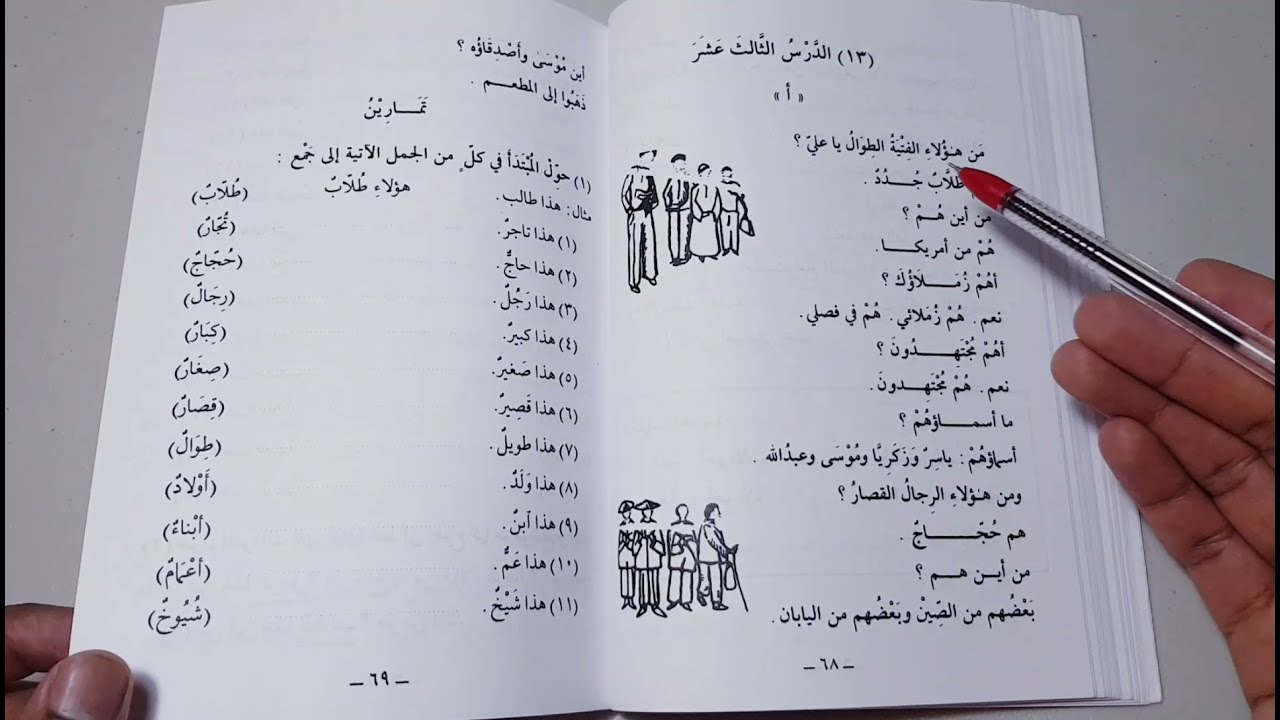 (١٣) الدَّرْسُ الثَّالِثَ عَشَرَ
« أ »
مَن هـٰؤُلاءِ الفِتْيَةُ الطِوَالُ يا عليّ ؟
طُلَّابٌ جُـــدُدٌ .
مَن أين هُمْ ؟
هُمْ من أمريكـا.
أهُمْ زُمَـــلَاؤُكَ ؟
نعم. هُمْ زُمَلائي. هُمْ في فصلي.
أهُمْ مُجْتَهِـــدُونَ ؟
نعم. هُمْ مُجْتَهِـدونَ.
ما أسمـــاؤهُمْ ؟
أسماؤهُمْ : ياسِرٌ وَزَكَرِيَّا ومُوْسَى وعبدُالله .
ومن هـؤلاءِ الرِجالُ القصارُ ؟
هم حُجَّـــاجٌ .
من أيـن هـم ؟
بَعْضُهم من الصِّيْن وبَعْضُهم من اليابان .
ـ ٦٨ ـ
أين مُوْسَىٰ وأصْدِقَاؤُه ؟
ذَهَبُوا إلى المطعـــم .
تَمَـــارِيْنُ
(١) حوِّلْ المُبْتَدَأَ في كلّ ٍ من الجمل الآتية إلى جَمْع :
مثال : هذا طالب . هؤلاءِ طُلّابٌ (طُلّابٌ)
(١) هذا تاجرٌ. (تُجّارٌ)
(٢) هذا حاجٌّ. (حُجّاجٌ)
(٣) هذا رَجُلٌ . (رِجَالٌ)
(٤) هذا كبيرٌ . (كِبَارٌ)
(٥) هذا صَغيرٌ. (صِغَارٌ)
(٦) هذا قَصِيرٌ. (قِصَارٌ)
(٧) هذا طويلٌ . (طِوَالٌ)
(٨) هذا وَلَدٌ . (أَوْلادٌ)
(٩) هذا آبنٌ . (أبْناءٌ)
(١٠) هذا عَمٌّ . (أعْمَامٌ)
(١١) هذا شَيْخٌ . (شُيُوخٌ)
ـ ٦٩ ـ